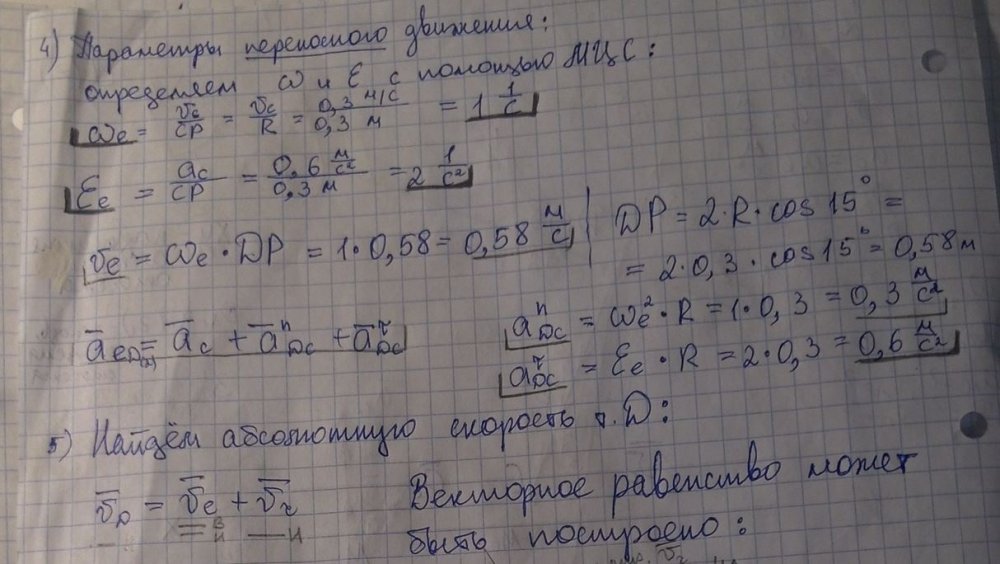 4) Параметры переносного движения:
определяем ω и ε с помощью МЦС:
ωe = vc/CP = vc/R = 0,3 м/с / 0,3 м = 1 1/с
εe = ac/CP = 0,6 м/с² / 0,3 м = 2 1/с²
ve = ωe · DP = 1·0,58 = 0,58 м/с
DP = 2·R·cos 15° =
= 2·0,3·cos 15° = 0,58 м
āeD(M) = āc + āⁿDC + āᵗDC
aⁿDC = ωe²·R = 1·0,3 = 0,3 м/с²
aᵗDC = εe·R = 2·0,3 = 0,6 м/с²
5) Найдём абсолютную скорость т. D:
v̄D = v̄e + v̄r
Векторное равенство может
быть построено: